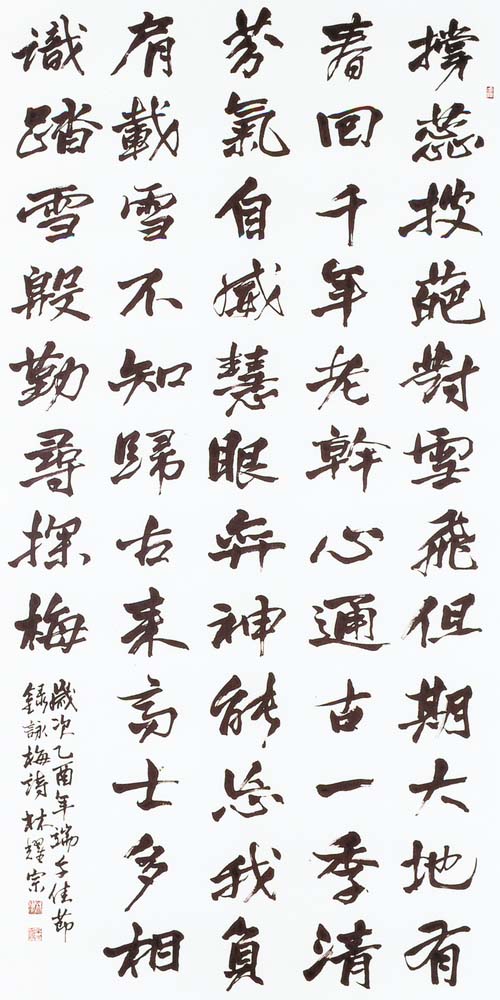 撐蕊披葩對雪飛但期大地有
春回千年老幹心通古一季清
芬氣自威慧眼弈神能忘我負
肩載雪不知歸古來高士多相
識踏雪殷勤尋探梅
歲次乙酉年端午佳節
錄詠梅詩 林耀宗